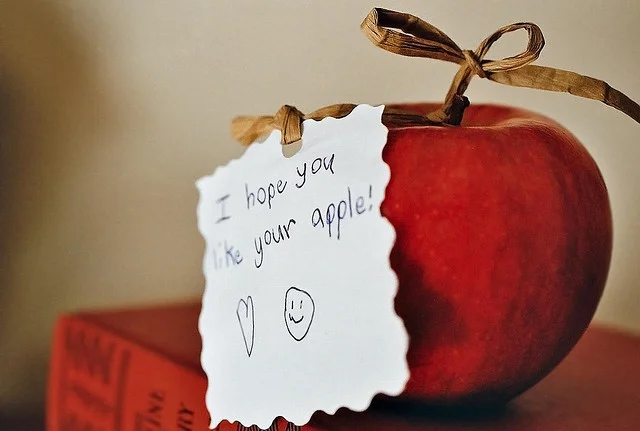 I hope you
like your apple!